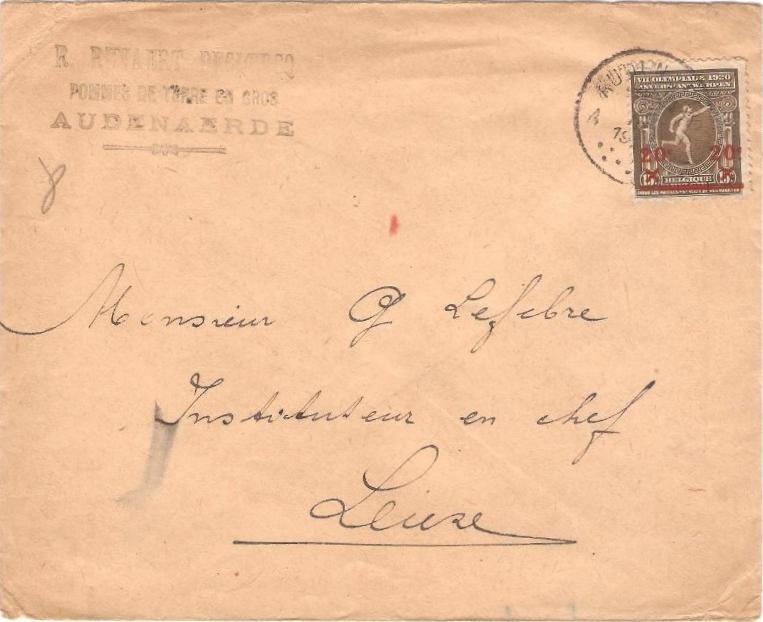 POMMES DE TERRE EN GROS
AUDENAERDE
VII OLYMPIADE 1920
ANVERS-ANTWERPEN
20c 20c
15 BELGIQUE 15
Monsieur G Lefebre
Instituteur en chef
Leuze